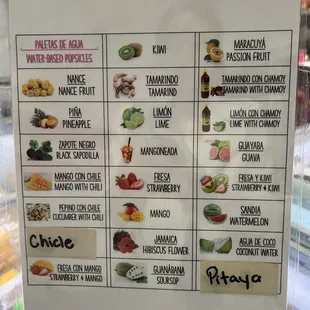 PALETAS DE AGUA
WATER-BASED POPSICLES
KIWI
MARACUYÁ
PASSION FRUIT
NANCE
NANCE FRUIT
TAMARINDO
TAMARIND
TAMARINDO CON CHAMOY
TAMARIND WITH CHAMOY
PIÑA
PINEAPPLE
LIMÓN
LIME
LIMÓN CON CHAMOY
LIME WITH CHAMOY
ZAPOTE NEGRO
BLACK SAPODILLA
MANGONEADA
GUAYABA
GUAVA
MANGO CON CHILE
MANGO WITH CHILI
FRESA
STRAWBERRY
FRESA Y KIWI
STRAWBERRY & KIWI
PEPINO CON CHILE
CUCUMBER WITH CHILI
MANGO
SANDIA
WATERMELON
Chicle
JAMAICA
HIBISCUS FLOWER
AGUA DE COCO
COCONUT WATER
FRESA CON MANGO
STRAWBERRY & MANGO
GUANÁBANA
SOURSOP
Pitaya